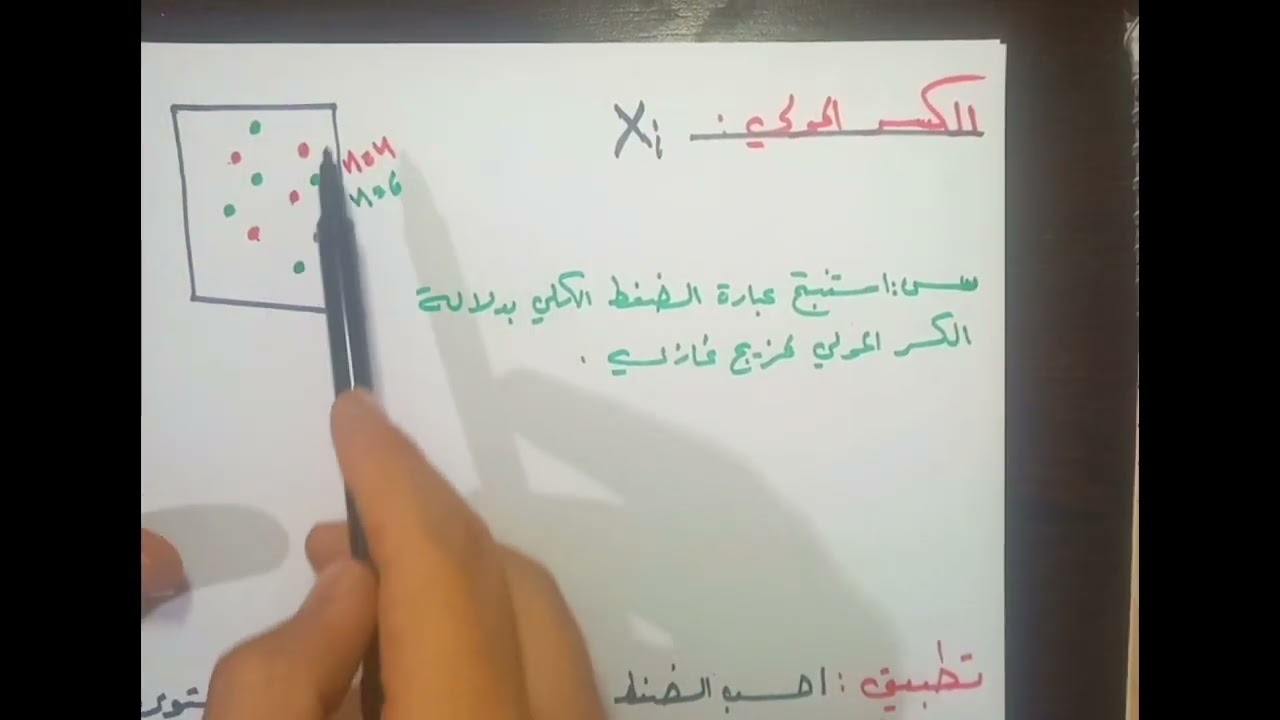 الكسر المولي : Xi
n=4
n=6
س: استنتج عبارة الضغط الكلي بدلالة
الكسر المولي لمزيج غازي .
تطبيق : احسب الضغط